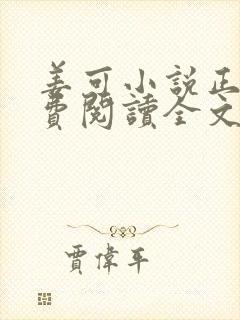 姜可小说正
費閱讀全文
賈偉平